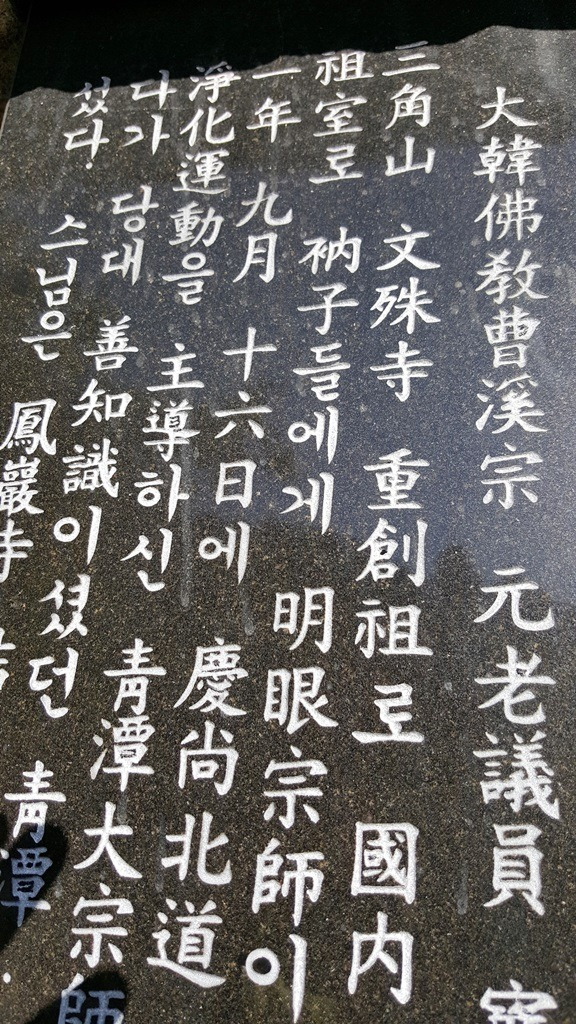 大韓佛教曹溪宗 元老議員
三角山 文殊寺 重創祖로 國内
祖室로 衲子들에게 明眼宗師이
一年 九月 十六日에 慶尚北道
淨化運動을 主導하신 青潭大宗師
다가 당대 善知識이셨던 青潭
셨다. 스님은 鳳巖寺